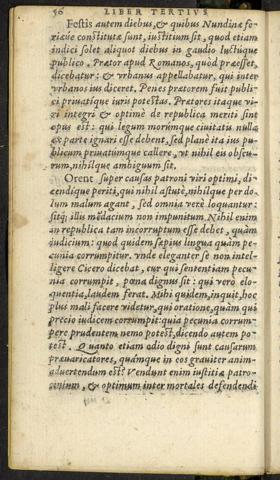 56 LIBER TERTIVS
Festis autem diebus, & quibus Nundinæ fe-
riæue constitutæ sunt, iustitium sit, quod etiam
indici solet aliquot diebus in gaudio luctúque
publico. Prætor apud Romanos, quòd præesset,
dicebatur: & vrbanus appellabatur, qui inter
vrbanos ius diceret. Penes prætorem fuit publi-
ci priuatique iuris potestas. Prætores itaque vi-
ri integri & optimè de republica meriti sint
opus est: qui legum morúmque ciuitatu nulla
ex parte ignari esse debent, sed planè ita ius pu-
blicum priuatúmque callere, vt nihil eis obscu-
rum, nihilque ambiguum sit.
Orent super causas patroni viri optimi, di-
cendique periti, qui nihil astutè, nihilque per do-
lum malum agant, sed omnia verè loquantur:
sitq; illis mẽdacium non impunitum. Nihil enim
in republica tam incorruptum esse debet, quàm
iudicium: quod quidem sæpius lingua quàm pe-
cunia corrumpitur. vnde eleganter se non intel-
ligere Cicero dicebat, cur qui sententiam pecu-
nia corrumpit, pœna dignus sit: qui verò elo-
quentia, laudem ferat. Mihi quidem, inquit, hoc
plus mali facere videtur, qui oratione, quàm qui
precio iudicem corrumpit: quia pecunia corrum-
pere prudentem nemo potest, dicendo autem po-
test. Quanto etiam odio digni sunt causarum
præuaricatores, quámque in eos grauiter anim-
aduertendum est? Vendunt enim iustitiæ patro-
cinium, & optimum inter mortales defendendi